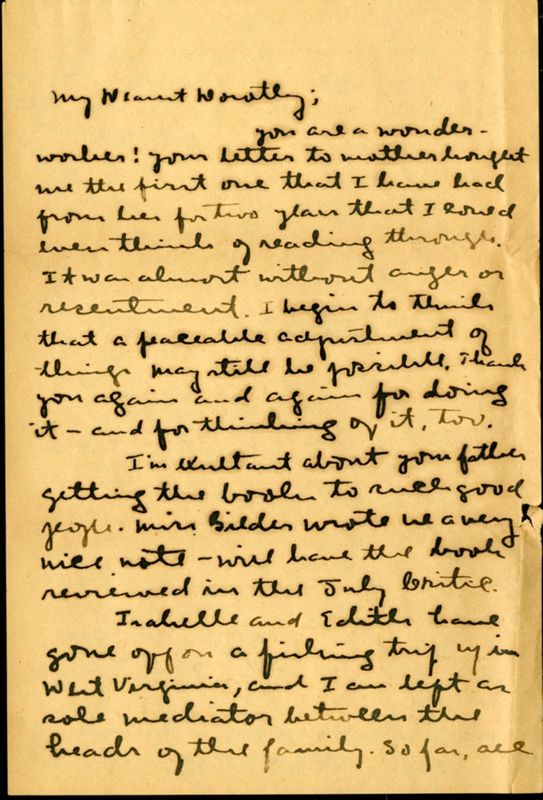 My Dearest Dorothy;
you are a wonder-
worker! your letter to mother brought
me the first one that I have had
from her for two years that I could
even think of reading through.
It was almost without anger or
resentment. I begin to think
that a peaceable adjustment of
things may still be possible. Thank
you again and again for doing
it - and for thinking of it, too.
I'm exultant about your father
getting the book to such good
people. Miss Gilder wrote me a very
nice note - will have the book
reviewed in the July Critic.
Isabelle and Edith have
gone off on a fishing trip up in
West Virginia, and I am left as
sole mediator between the
heads of the family. So far, all